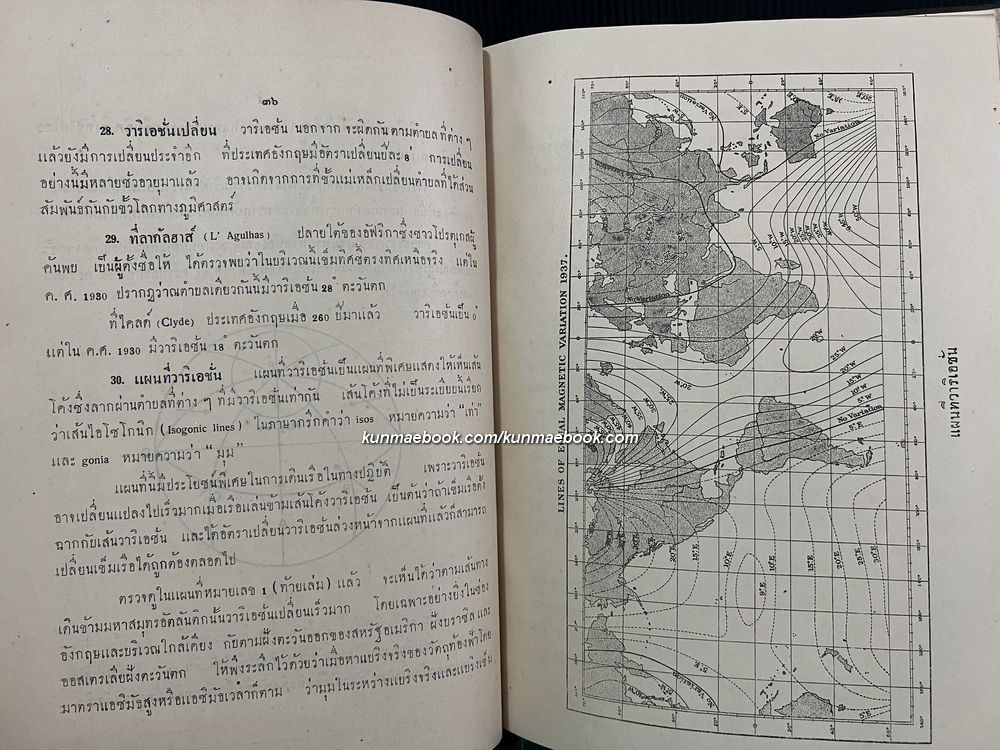 ๓๖
28. วาริเอชั่นเปลี่ยน วาริเอชั่น นอกจาก จะผิดกัน ตามตำบล ที่ต่าง ๆ
แล้วยังมีการเปลี่ยนประจำอีก ที่ประเทศอังกฤษมีอัตราเปลี่ยนปีละ 8′ การเปลี่ยน
อย่างนี้มีหลายชั่วอายุมาแล้ว อาจเกิดจากการที่ขั้วแม่เหล็กเปลี่ยนตำบลที่ได้ส่วน
สัมพันธ์กันกับขั้วโลกทางภูมิศาสตร์
29. ที่ลากัลฮาส์ (L' Agulhas) ปลายใต้ของอัฟริกาซึ่งชาวโปรตุเกสผู้
ค้นพบ เป็นผู้ตั้งชื่อให้ ได้ตรวจพบว่าในบริเวณนี้เข็มทิศชี้ตรงทิศเหนือจริง แต่ใน
ค. ศ. 1930 ปรากฏว่าณตำบลเดียวกันนี้มีวาริเอชั่น 28° ตะวันตก
ที่ไคลด์ (Clyde) ประเทศอังกฤษเมื่อ 260 ปีมาแล้ว วาริเอชั่นเป็น 0°
แต่ใน ค.ศ. 1930 มีวาริเอชั่น 18° ตะวันตก
30. แผนที่วาริเอชั่น แผนที่วาริเอชั่นเป็นแผนที่พิเศษแสดงให้เห็นเส้น
โค้งซึ่งลากผ่านตำบลที่ต่าง ๆ ที่มีวาริเอชั่นเท่ากัน เส้นโค้งที่ไม่เป็นระเบียบนี้เรียก
ว่าเส้นไอโซโกนิก (Isogonic lines) ในภาษากรีกคำว่า isos หมายความว่า “เท่า”
และ gonia หมายความว่า “มุม”
kunmaebook.com/kunmaebook.com
แผนที่นี้มีประโยชน์พิเศษในการเดินเรือในทางปฏิบัติ เพราะวาริเอชั่น
อาจเปลี่ยนแปลงไปเร็วมากเมื่อเรือแล่นข้ามเส้นโค้งวาริเอชั่น เป็นต้นว่าถ้าเข็มเรือตั้ง
ฉากกับเส้นวาริเอชั่น และได้อัตราเปลี่ยนวาริเอชั่นล่วงหน้าจากแผนที่แล้วก็สามารถ
เปลี่ยนเข็มเรือได้ถูกต้องตลอดไป
ตรวจดูในแผนที่หมายเลข 1 (ท้ายเล่ม) แล้ว จะเห็นได้ว่าตามเส้นทาง
เดินข้ามมหาสมุทรอัตลันติกนั้นวาริเอชั่นเปลี่ยนเร็วมาก โดยเฉพาะอย่างยิ่งในช่อง
อังกฤษและบริเวณใกล้เคียง กับตามฝั่งตะวันออกของสหรัฐอเมริกา ฝั่งบราซิลและ
ออสเตรเลียฝั่งตะวันตก ให้พึงระลึกไว้ด้วยว่าเมื่อหาแบริงจริงของวัตถุท้องฟ้าโดย
มาตราแอซิมัธสูงหรือแอซิมัธเวลาก็ตาม ว่ามุมในระหว่างแบริงจริงและแบริงเข็ม
LINES OF EQUAL MAGNETIC VARIATION 1937.
No Variation
No Variation
No Variation
No Variation
No Variation
20°W
25°W
20°W
15°W
10°W
5°W
5°E
10°E
9°E
15°E
20°E
25°E
30°E
แผนที่วาริเอชั่น